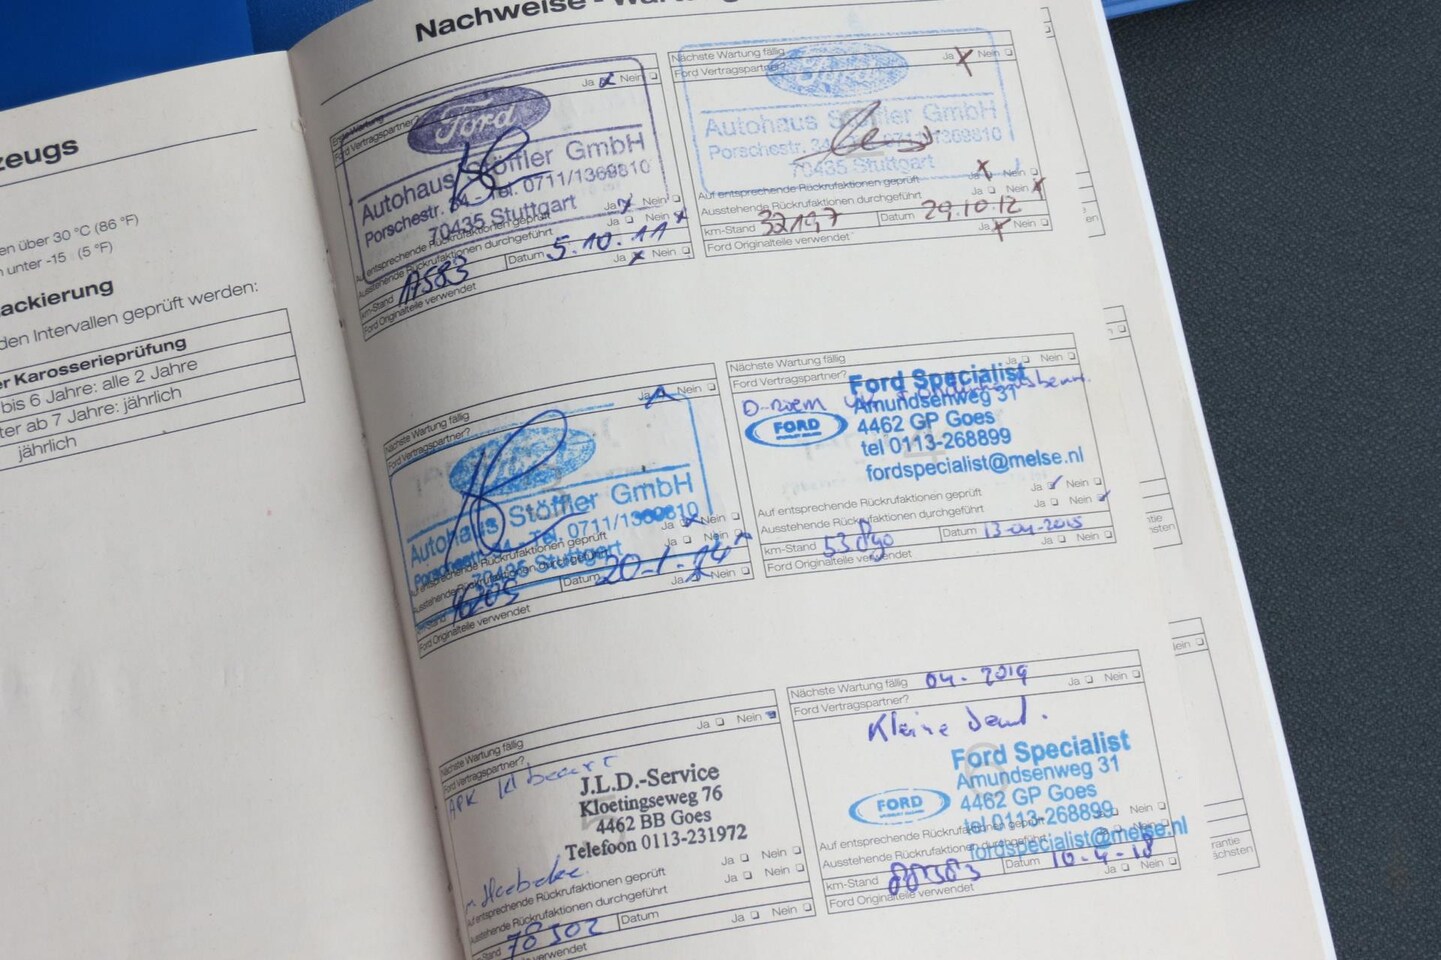 Nachweise - Wartung
zeugs
en über 30 °C (86 °F)
n unter -15 (5 °F)
ackierung
den Intervallen geprüft werden:
er Karosserieprüfung
bis 6 Jahre: alle 2 Jahre
ter ab 7 Jahre: jährlich
jährlich
Ja Nein
Ford Vertragspartner?
Ford
Autohaus Stöffler GmbH
Porschestr. Tel. 0711/1369810
70435 Stuttgart
Auf entsprechende Rückrufaktionen geprüft Ja Nein
Ausstehende Rückrufaktionen durchgeführt Ja Nein
km-Stand Datum 5.10.11
Ford Originalteile verwendet Ja Nein
Nächste Wartung fällig
Ford Vertragspartner? Ja Nein
Ford
Autohaus Stöffler GmbH
Porschestr. 0711/1369810
70435 Stuttgart
Auf entsprechende Rückrufaktionen geprüft Ja Nein
Ausstehende Rückrufaktionen durchgeführt Ja Nein
km-Stand 32197 Datum 29.10.12
Ford Originalteile verwendet Ja Nein
Nächste Wartung fällig
Ford Vertragspartner? Ja Nein
Ford
Autohaus Stöffler GmbH
Porschestr. Tel. 0711/1369810
70435 Stuttgart
Auf entsprechende Rückrufaktionen geprüft Ja Nein
Ausstehende Rückrufaktionen durchgeführt Ja Nein
km-Stand Datum 20-1-14
Ford Originalteile verwendet Ja Nein
Nächste Wartung fällig
Ford Vertragspartner? Ja Nein
Ford Specialist
Amundsenweg 31
FORD
4462 GP Goes
tel 0113-268899
fordspecialist@melse.nl
Auf entsprechende Rückrufaktionen geprüft Ja Nein
Ausstehende Rückrufaktionen durchgeführt Ja Nein
km-Stand Datum 13-04-2015
Ford Originalteile verwendet Ja Nein
Nächste Wartung fällig
Ford Vertragspartner? Ja Nein
APK
J.L.D.-Service
Kloetingseweg 76
4462 BB Goes
Telefoon 0113-231972
Auf entsprechende Rückrufaktionen geprüft Ja Nein
Ausstehende Rückrufaktionen durchgeführt Ja Nein
78502 Datum
Ford Originalteile verwendet Ja Nein
Nächste Wartung fällig 04-2019
Ford Vertragspartner? Ja Nein
Kleine
Ford Specialist
Amundsenweg 31
FORD
4462 GP Goes
tel 0113-268899
fordspecialist@melse.nl
Auf entsprechende Rückrufaktionen geprüft Ja Nein
Ausstehende Rückrufaktionen durchgeführt Ja Nein
km-Stand Datum 10-4-18
Ford Originalteile verwendet Ja Nein